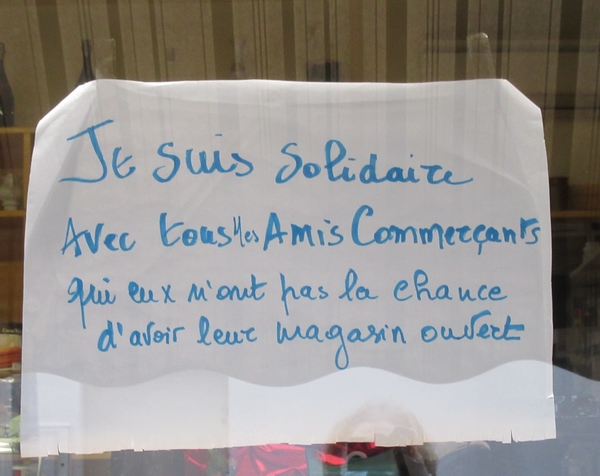 Je suis Solidaire
Avec tous mes Amis Commerçants
qui eux n'ont pas la chance
d'avoir leur magasin ouvert